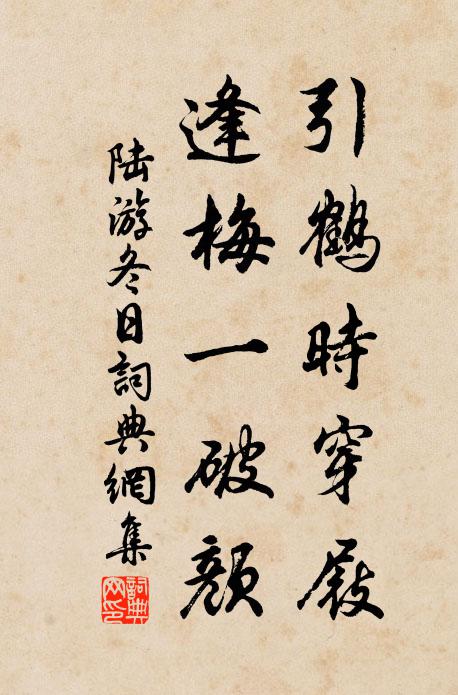 引鶴時穿屐
逢梅一破顏
陸游冬日詞典網集
詞典網印